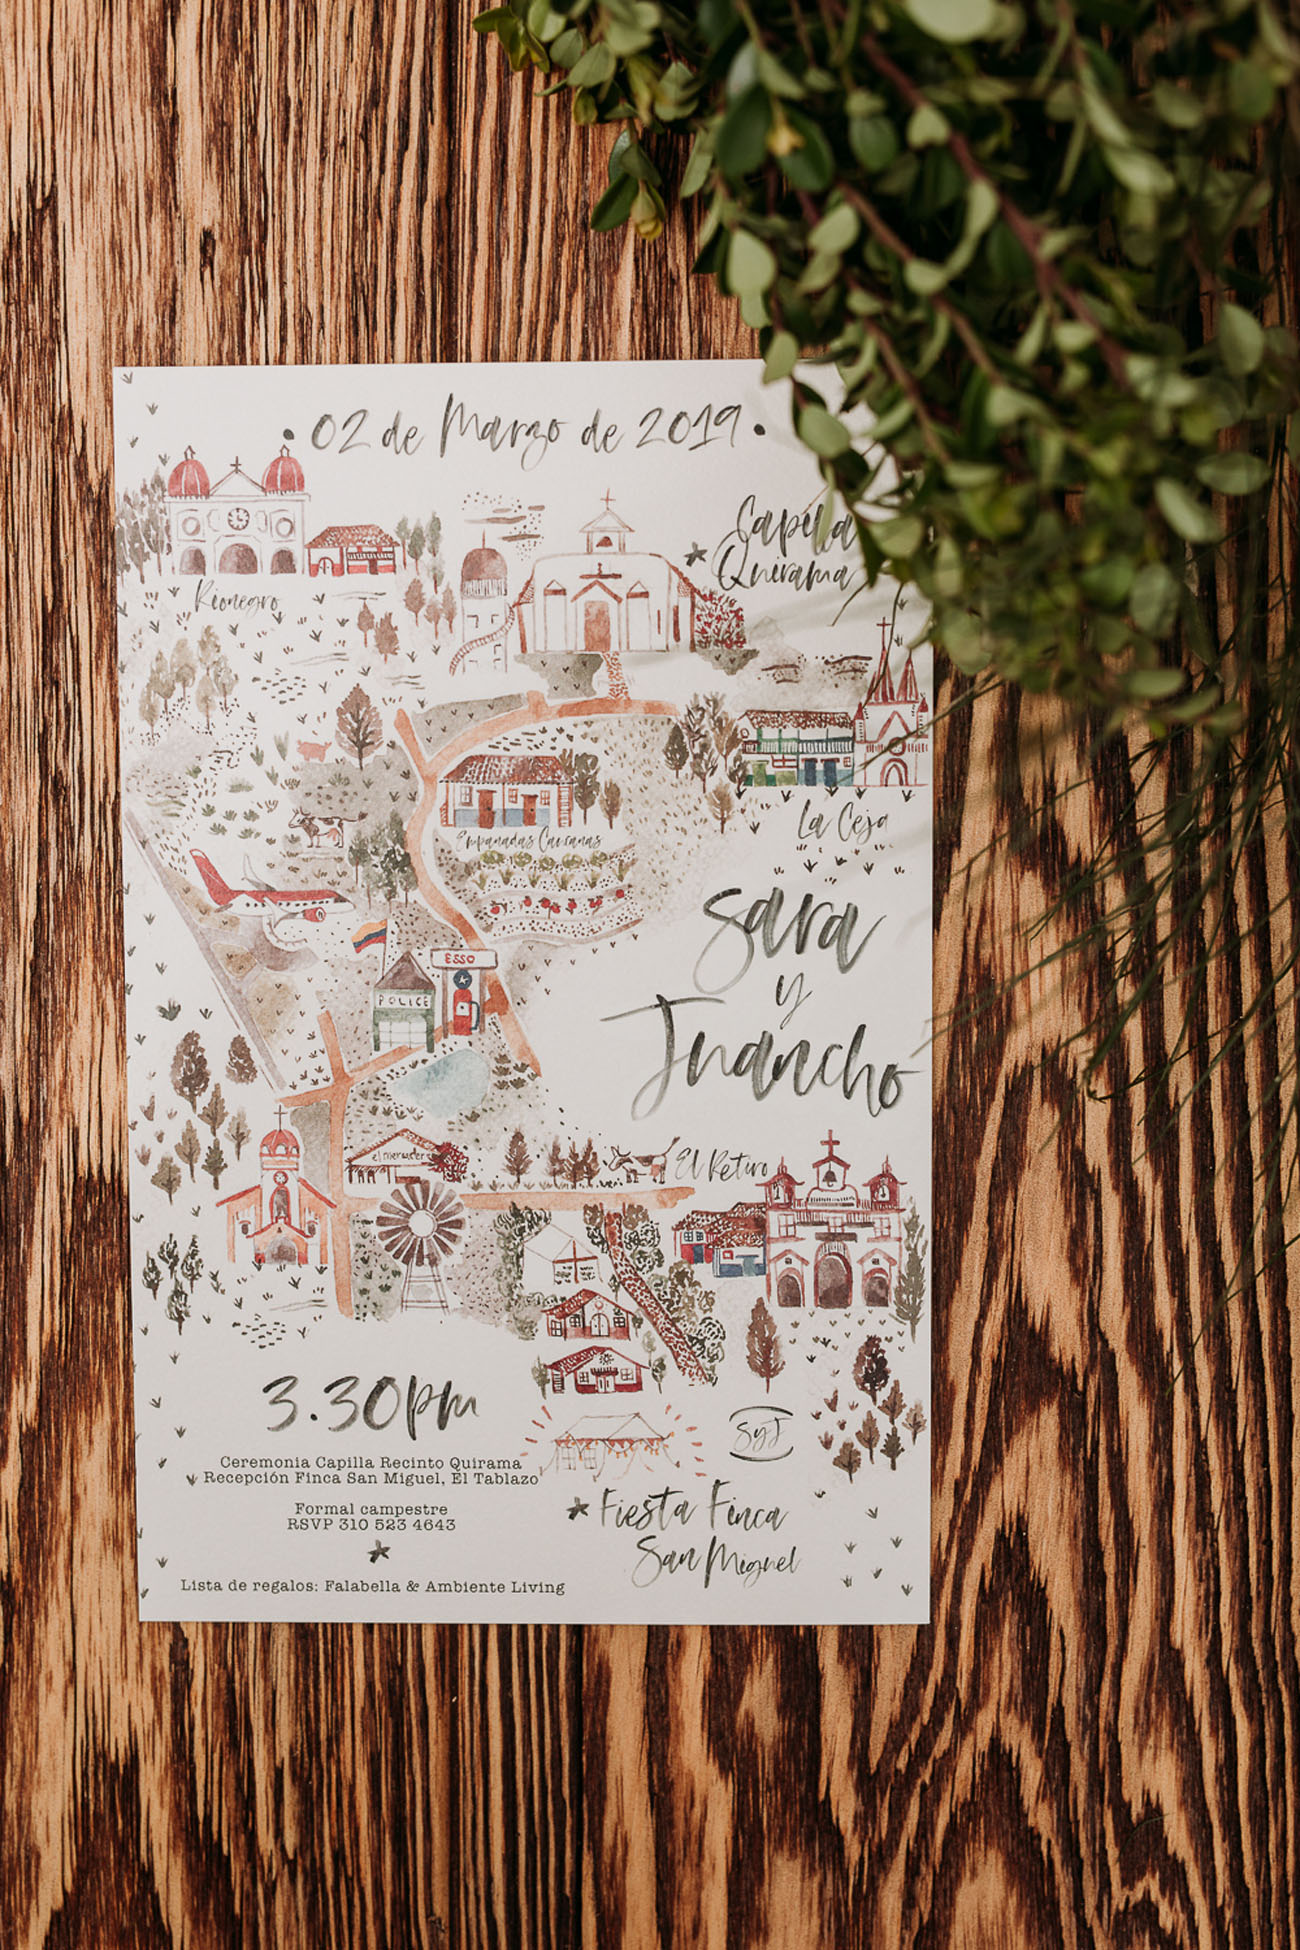 • 02 de Marzo de 2019 •
Capilla
Quirama
Rionegro
La Ceja
Empanadas Caucanas
Sara
y
Juancho
ESSO
POLICE
El Retiro
3.30pm
Ceremonia Capilla Recinto Quirama
Recepción Finca San Miguel, El Tablazo
Formal campestre
RSVP 310 523 4643
SyJ
Fiesta Finca
San Miguel
Lista de regalos: Falabella & Ambiente Living